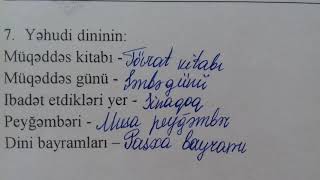 7. Yəhudi dininin:
Müqəddəs kitabı - Tövrat kitabı
Müqəddəs günü - Şənbə günü
Ibadət etdikləri yer - Sinaqoq
Peyğəmbəri - Musa peyğəmbər
Dini bayramları – Pasxa bayramı